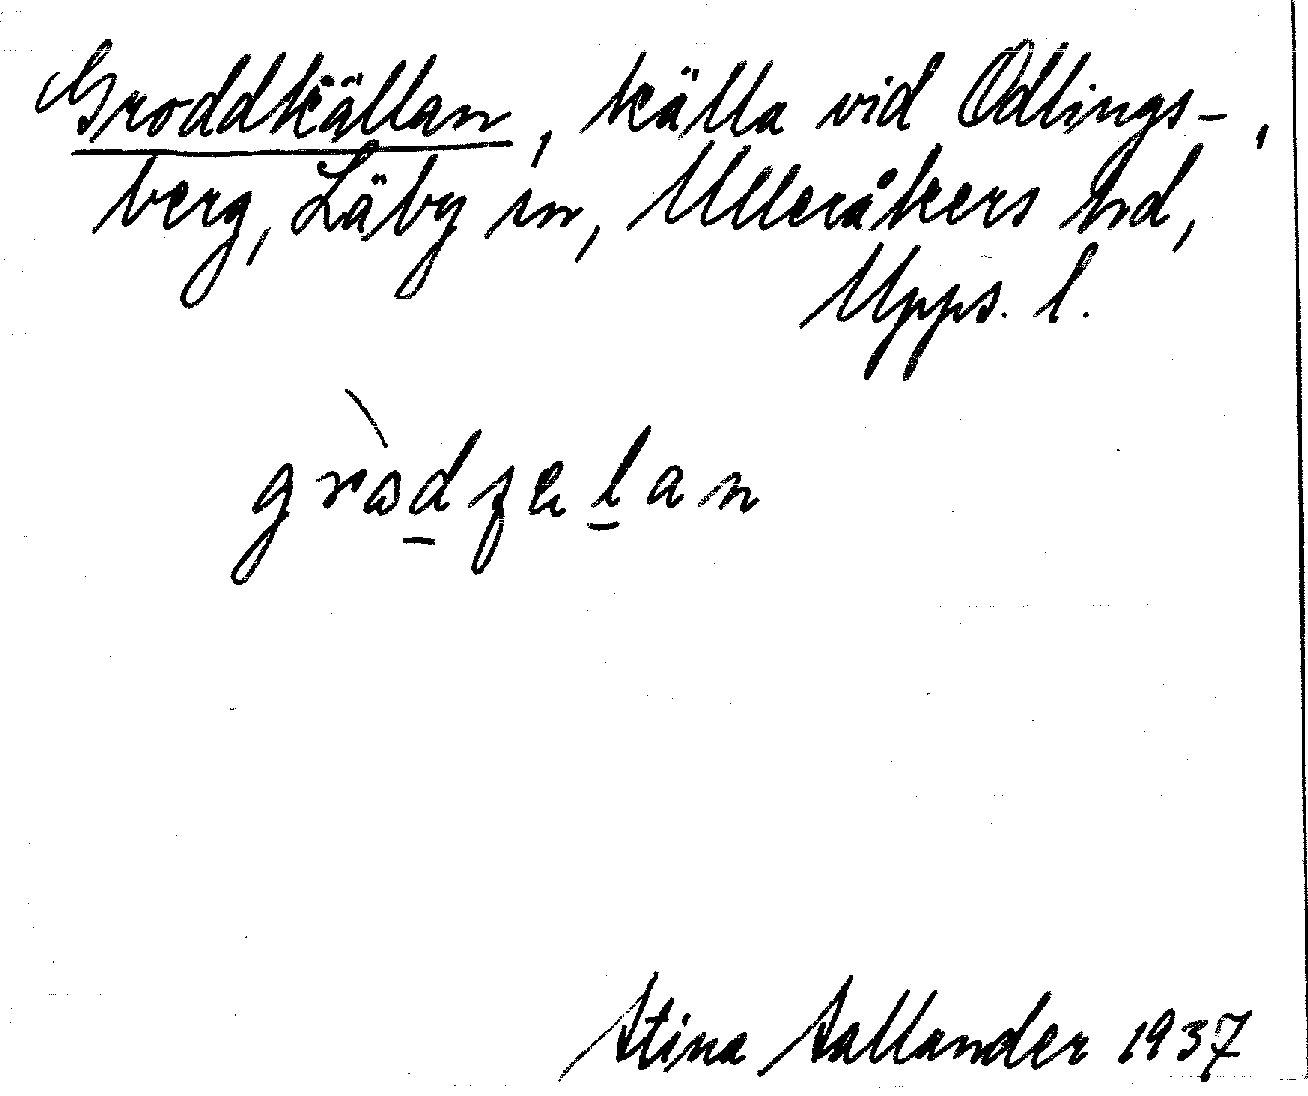 Groddkällan, källa vid Odlings-
berg, Läby sn, Ulleråkers hd,
Upps. l.
gròdʒęlan
Stina Sallander 1937